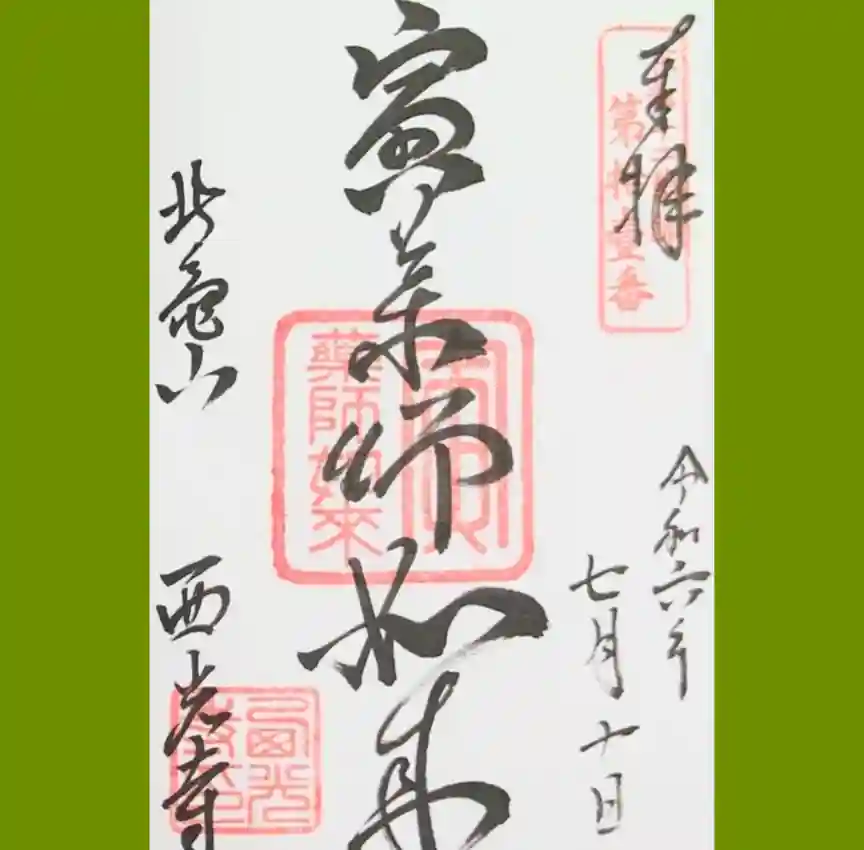 奉拝
第拾壹番
令和六年
七月十日
寅薬師如来
寅
藥師如來
北亀山
西光寺